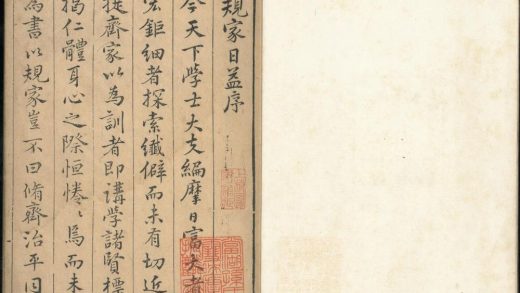 規家日益序
今天下學士大夫編摩日富大者
宏鉅細者探索纖僻而未有切近
提齊家以為訓者即講學諸賢標
揭仁體身心之際恒惓〻焉而未
為書以規家豈不曰脩齊治平同